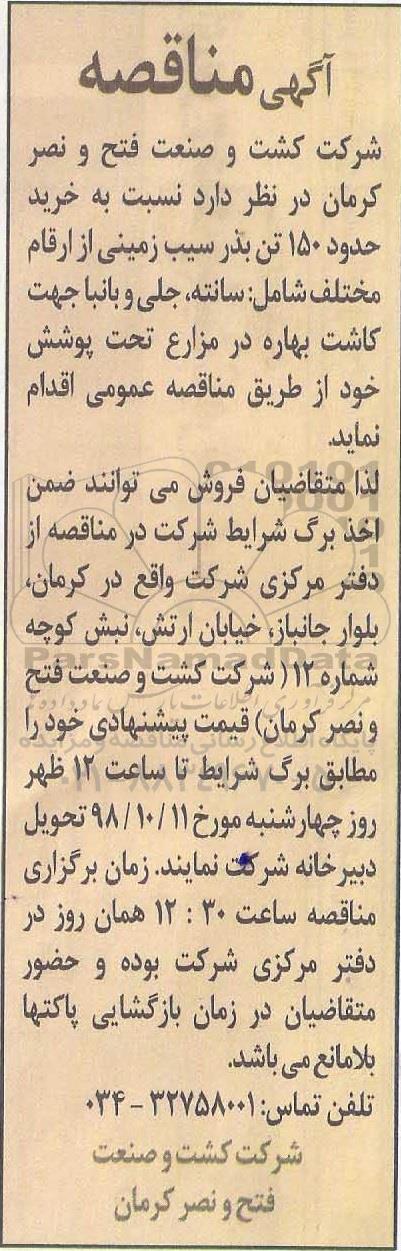 آگهی مناقصه
شرکت کشت و صنعت فتح و نصر
کرمان در نظر دارد نسبت به خرید
حدود ۱۵۰ تن بذر سیب زمینی از ارقام
مختلف شامل: سانته، جلی و بانبا جهت
کاشت بهاره در مزارع تحت پوشش
خود از طریق مناقصه عمومی اقدام
نماید.
لذا متقاضیان فروش می توانند ضمن
اخذ برگ شرایط شرکت در مناقصه از
دفتر مرکزی شرکت واقع در کرمان،
بلوار جانباز، خیابان ارتش، نبش کوچه
ParsNamadData
شماره ۱۲ ( شرکت کشت و صنعت فتح
و نصر کرمان) قیمت پیشنهادی خود را
پایگاه اطلاع رسانی مناقصه و مزایده
مطابق برگ شرایط تا ساعت ۱۲ ظهر
روز چهارشنبه مورخ ۹۸/۱۰/۱۱ تحویل
دبیرخانه شرکت نمایند. زمان برگزاری
مناقصه ساعت ۳۰ : ۱۲ همان روز در
دفتر مرکزی شرکت بوده و حضور
متقاضیان در زمان بازگشایی پاکتها
بلامانع می باشد.
تلفن تماس: ۳۲۷۵۸۰۰۱ - ۰۳۴
شرکت کشت و صنعت
فتح و نصر کرمان